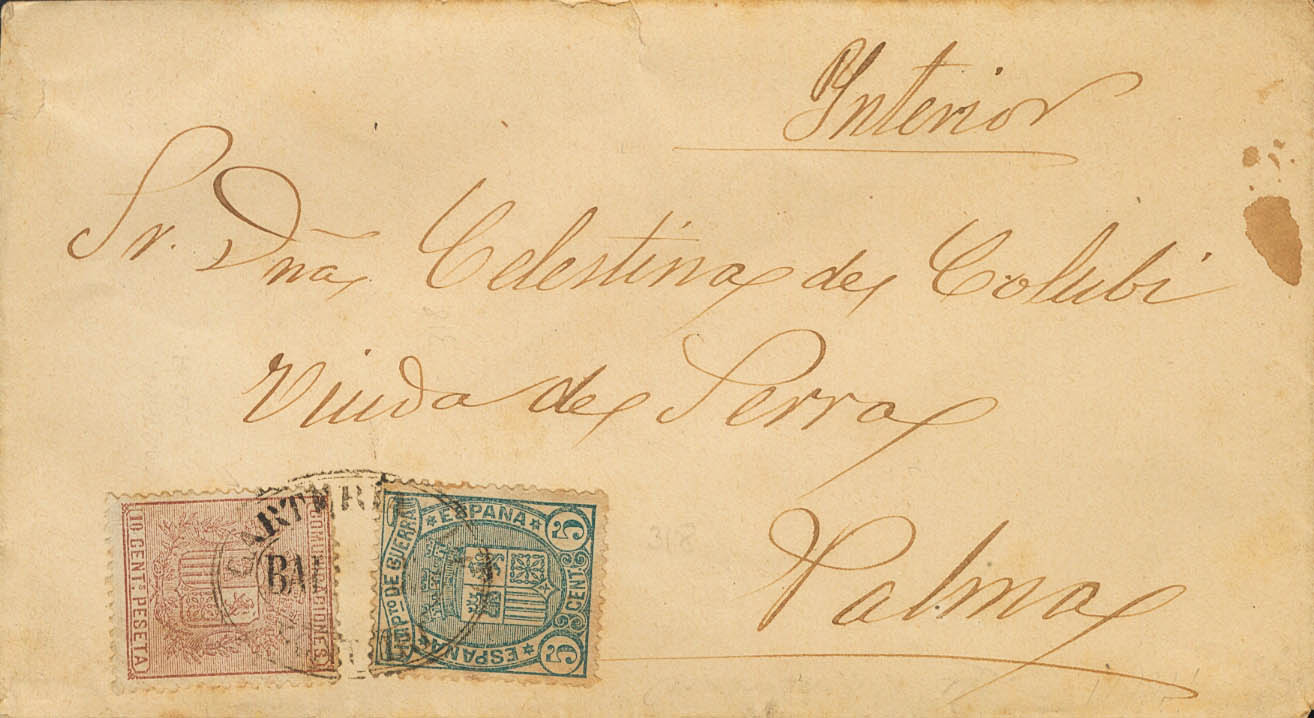 Interior
Sr. Dña Celestina de Colubi
Viuda de Serra
Palma
318
COMUNICACIONES
10 CENT: PESETA
ARTERI
BAL
ESPAÑA
IMPTO DE GUERRA
5 CENT. 5
ESPAÑA